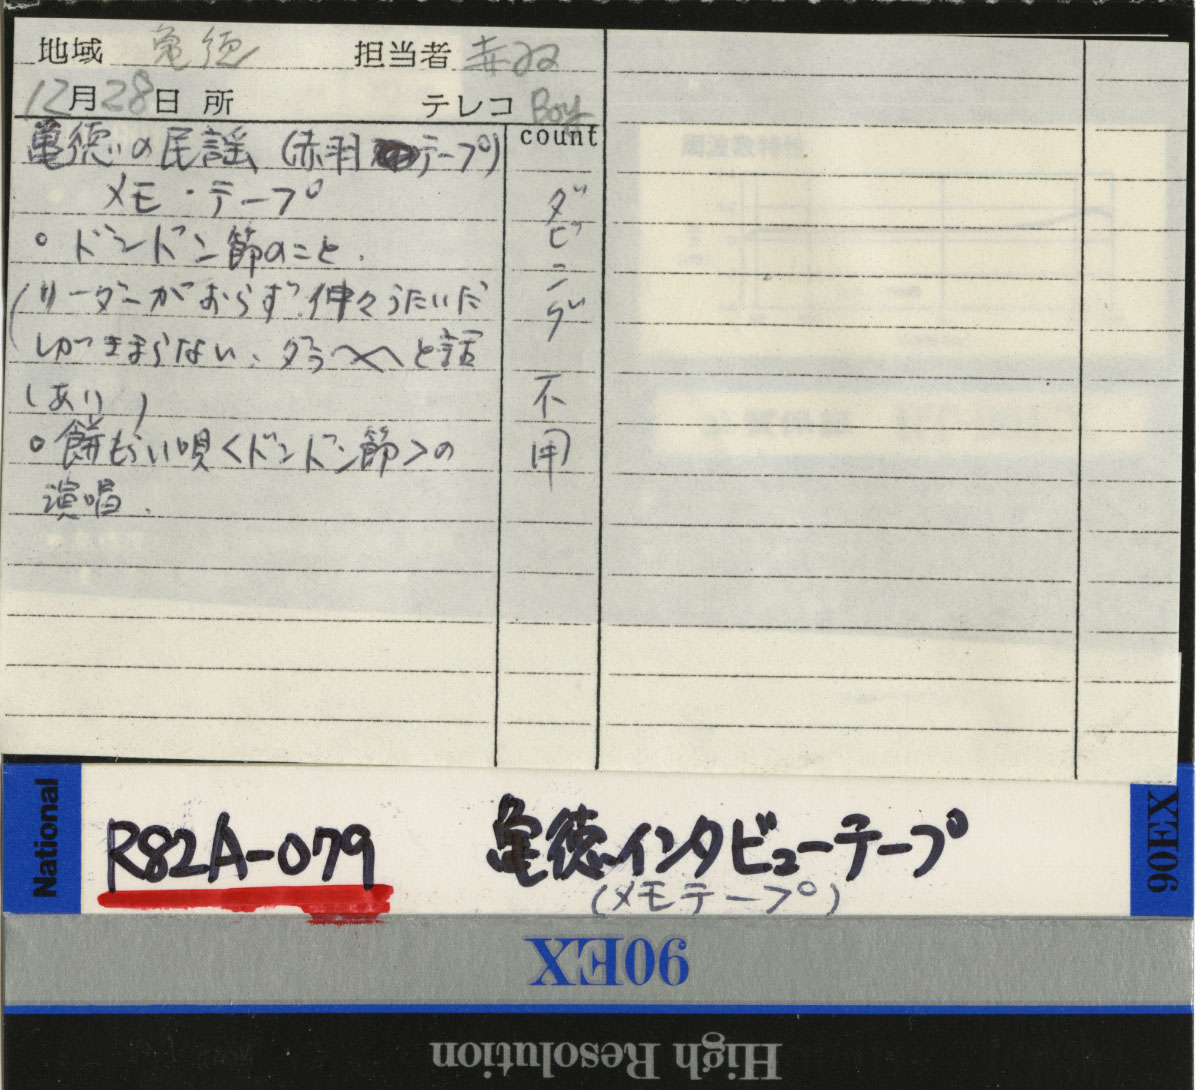 地域 亀徳 担当者 赤羽
12月28日 所 テレコ Boy
亀徳の民謡 (赤羽 テープ) count
メモ・テープ
ダビング不用
○ ドンドン節のこと.
(リーダーがおらず.仲々うたいだ
しがきまらない、ダラ〱と話
しあり)
○ 餅もらい唄<ドンドン節>の
演唱.
National
R82A-079 亀徳インタビューテープ
(メモテープ)
90EX
90EX
High Resolution